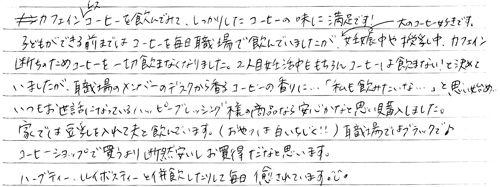 カフェインレスコーヒーを飲んでれて、しっかりしたコーヒーの味に満足です! 大のコーヒー好きです。
子どもができる前まではコーヒーを毎日職場で飲んでいましたが、妊娠中や授乳中、カフェイン
断ちのためコーヒーを一切飲まなくなりました。2人目妊活中ももちろんコーヒーは飲まない!と決めて
いましたが、職場のメンバーのデスクから香るコーヒーの香りに…「私も飲みたいな…」と思い始め…
いつもお世話になっているハッピーブレッシング様の商品なら安心かなと思い購入しました。
家では豆乳を入れて夫と飲んでいます。(おやつは白いちじく!!) 職場ではブラックで♪
コーヒーショップで買うより断然安いしお買得だなと思います。
ハーブティー、ルイボスティーと併飲したりして毎日癒されています。